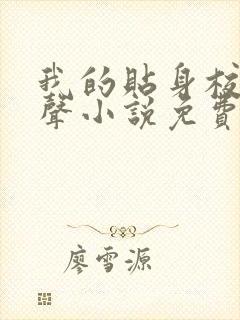 我的貼身校
聲小說免費
廖雪源